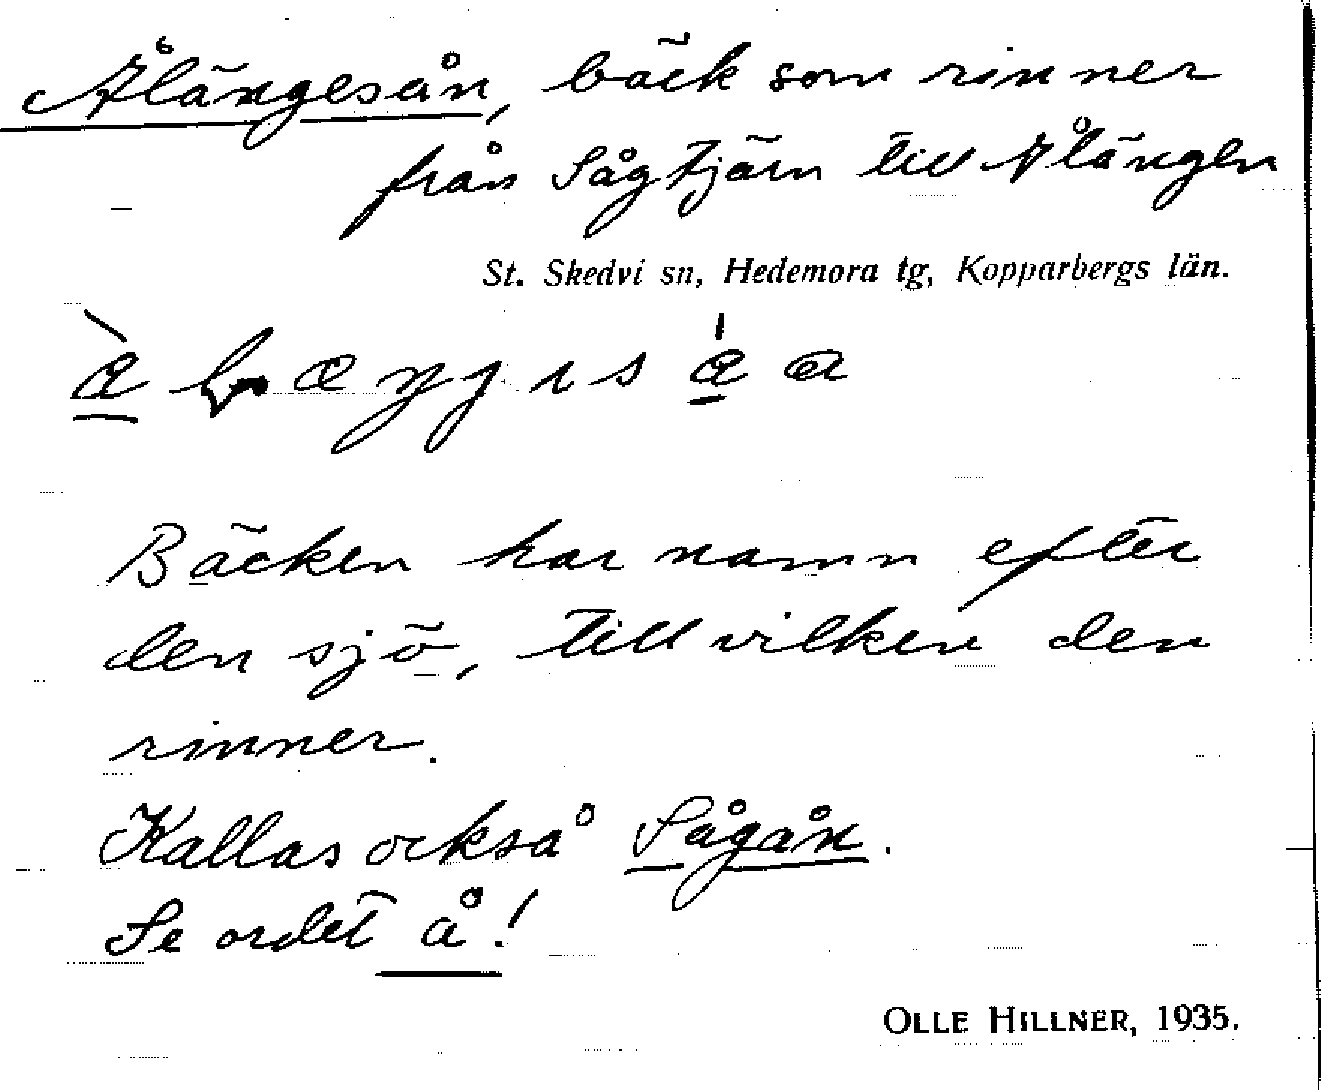 Ålängesån, bäck som rinner
från Sågtjärn till Ålängen
St. Skedvi sn, Hedemora tg, Kopparbergs län.
Bäcken har namn efter
den sjö, till vilken den
rinner.
Kallas också Sågån.
Se ordet å!
OLLE HILLNER, 1935.